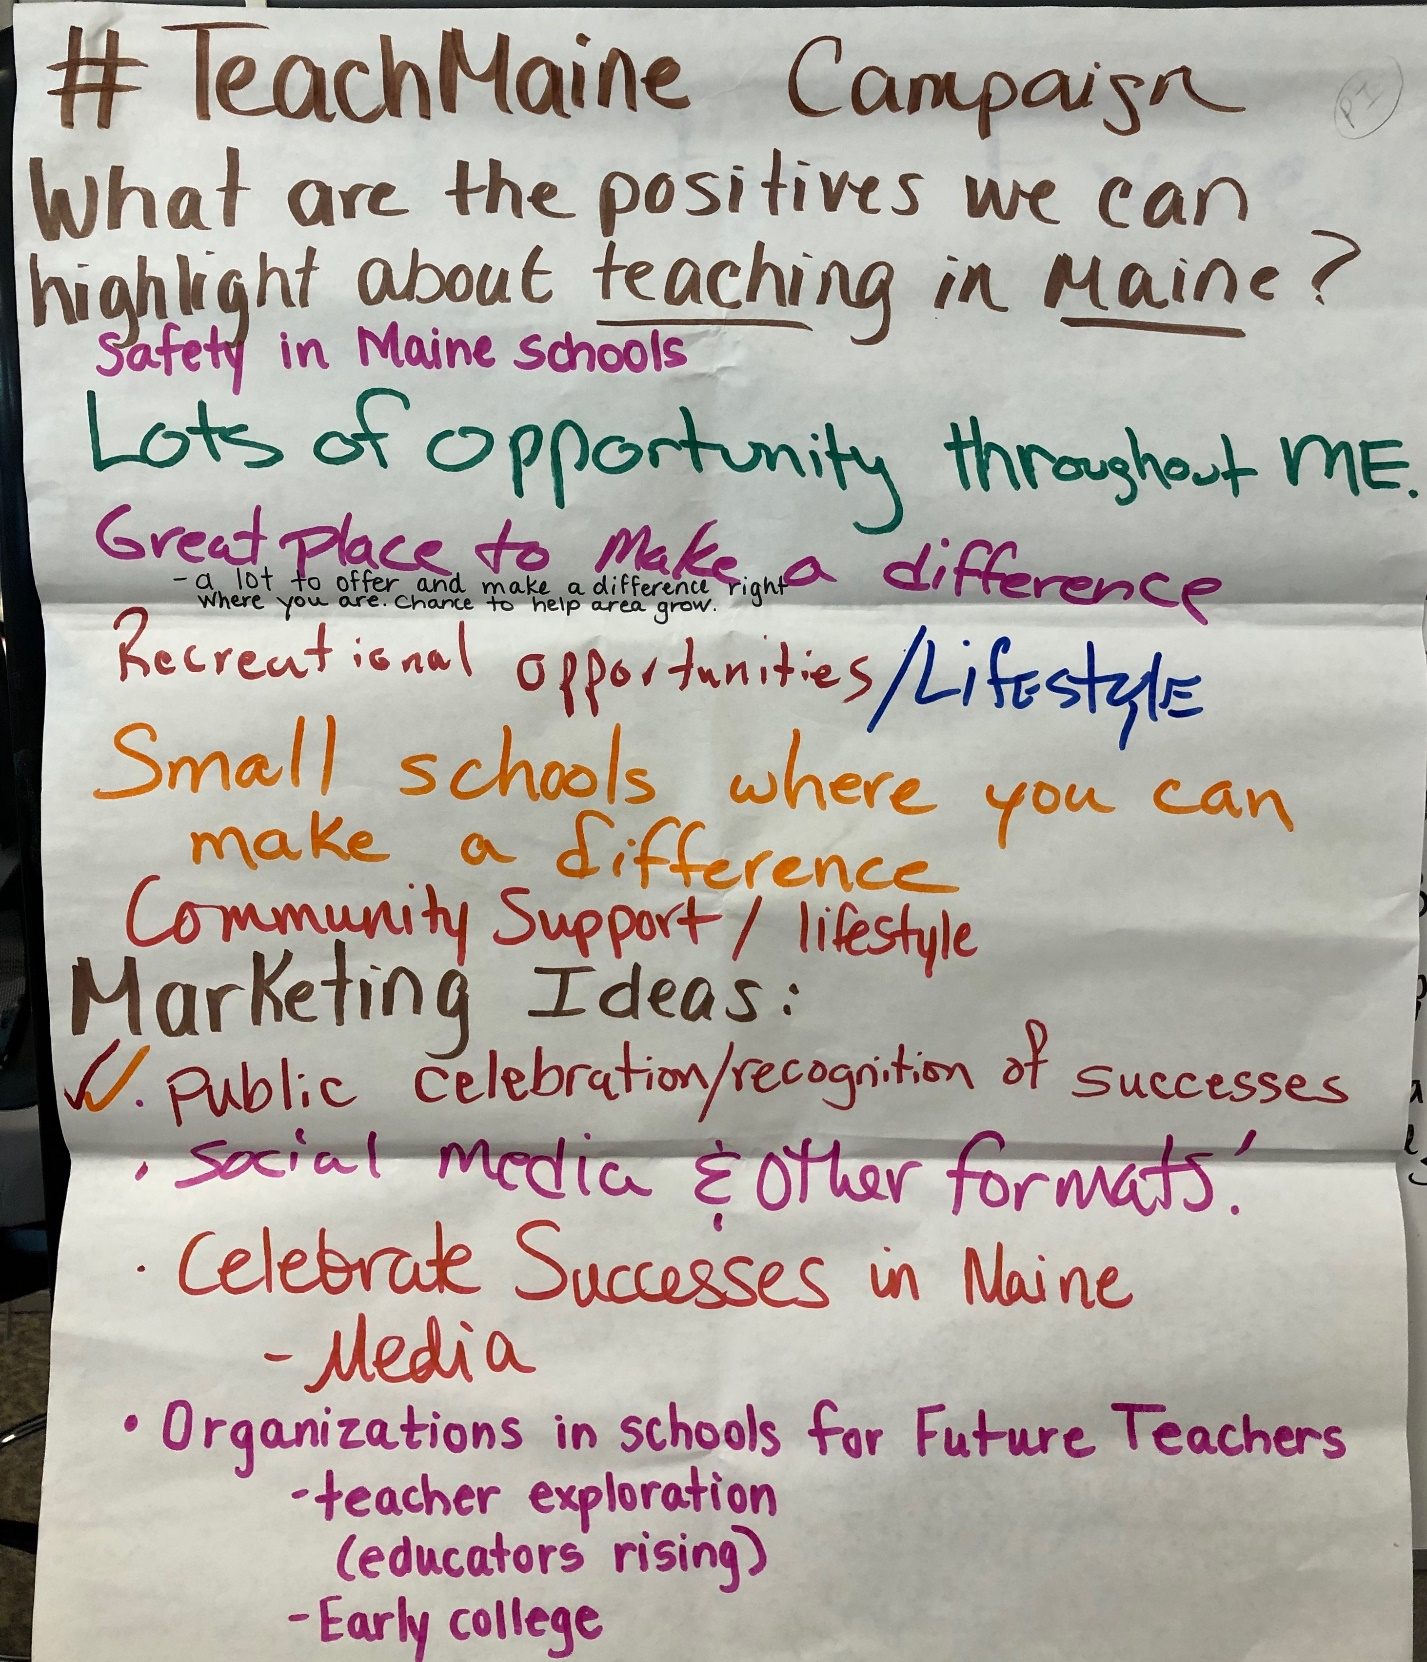 #TeachMaine Campaign
P I
What are the positives we can
highlight about teaching in Maine?
Safety in Maine schools
Lots of opportunity throughout ME.
Great place to make a difference
- a lot to offer and make a difference right
where you are. Chance to help area grow.
Recreational opportunities/Lifestyle
Small schools where you can
make a difference
Community Support / lifestyle
Marketing Ideas:
✓✓. Public celebration/recognition of successes
. Social Media & other formats!
. Celebrate Successes in Maine
- Media
• Organizations in schools for Future Teachers
- teacher exploration
(educators rising)
- Early college